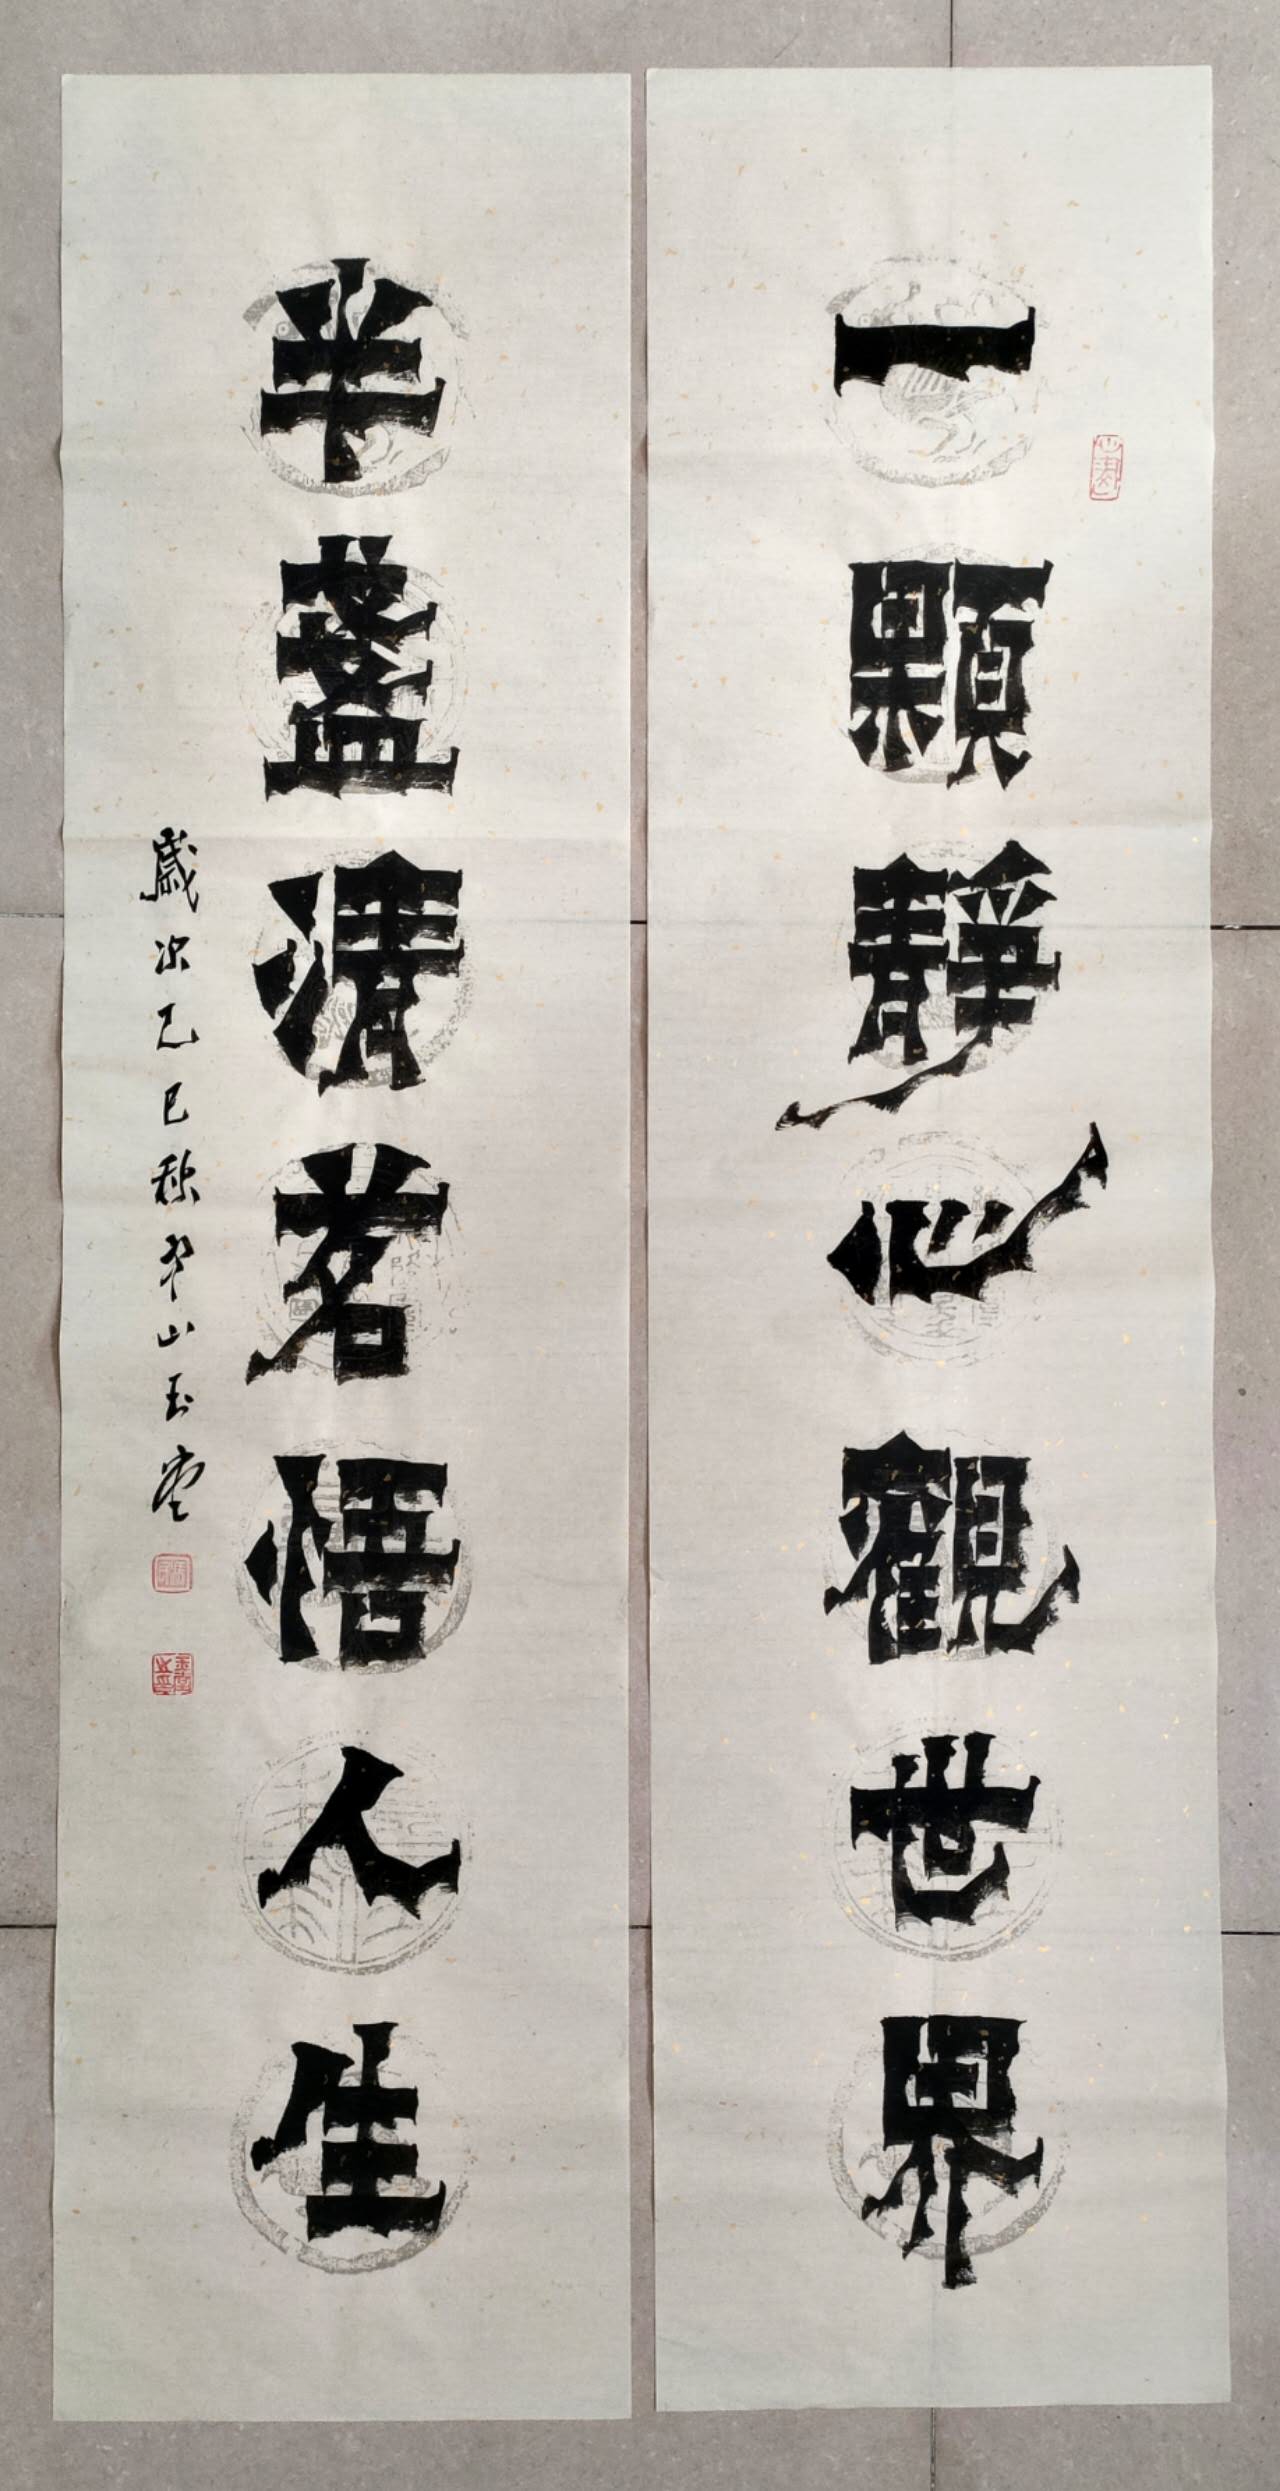 一顆靜心觀世界
半盞清茗悟人生
歲次乙巳秋中山玉堂